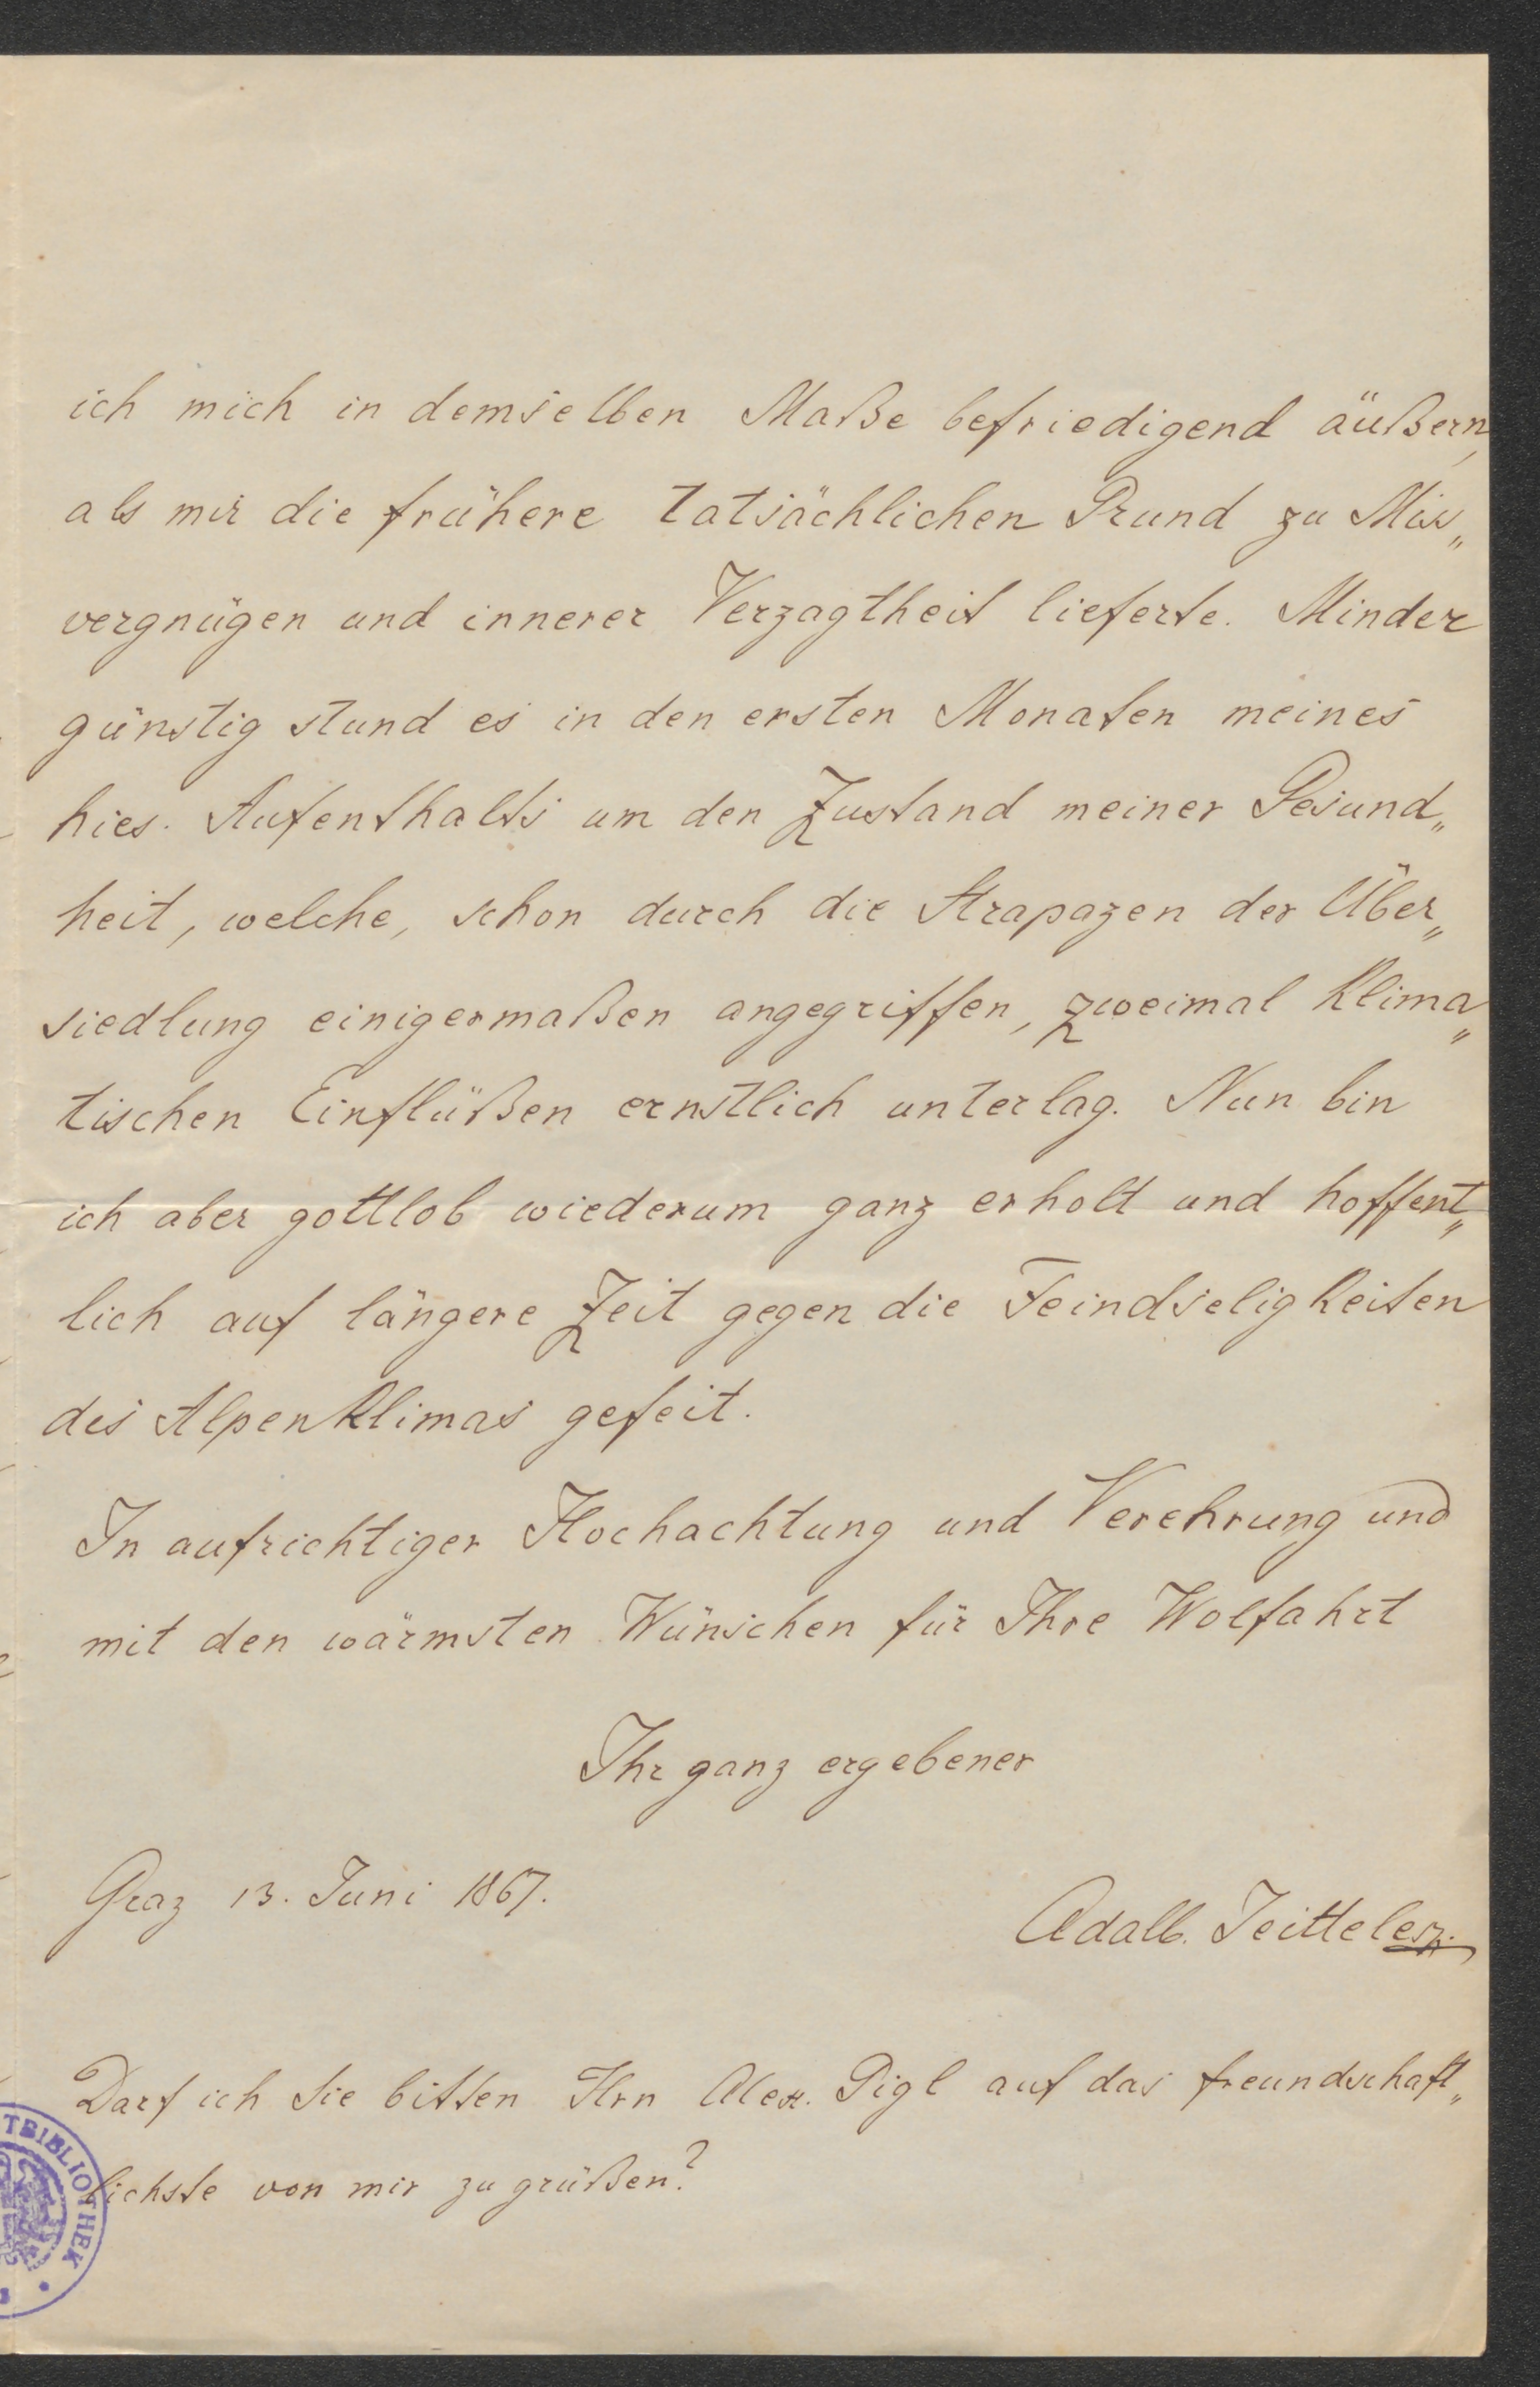 ich mich in demselben Maße befriedigend äußern,
als mir die frühere tatsächlichen Grund zu Mis„
vergnügen und innerer Verzagtheit lieferte. Minder
günstig stund es in den ersten Monaten meines
hies. Aufenthalts um den Zustand meiner Gesund„
heit, welche, schon durch die Strapazen der Über„
siedlung einigermaßen angegriffen, zweimal klima„
tischen Einflüßen ernstlich unterlag. Nun bin
ich aber gottlob wiederum ganz erholt und hoffent„
lich auf längere Zeit gegen die Feindseligkeiten
des Alpenklimas gefeit.
In aufrichtiger Hochachtung und Verehrung und
mit den wärmsten Wünschen für Ihre Wolfahrt
Ihr ganz ergebener
Graz 13. Juni 1867.
Adalb. Jeitteles.
Darf ich Sie bitten Hrn Alex. Gigl auf das freundschaft„
lichste von mir zu grüßen?
TBIBLIOTHEK